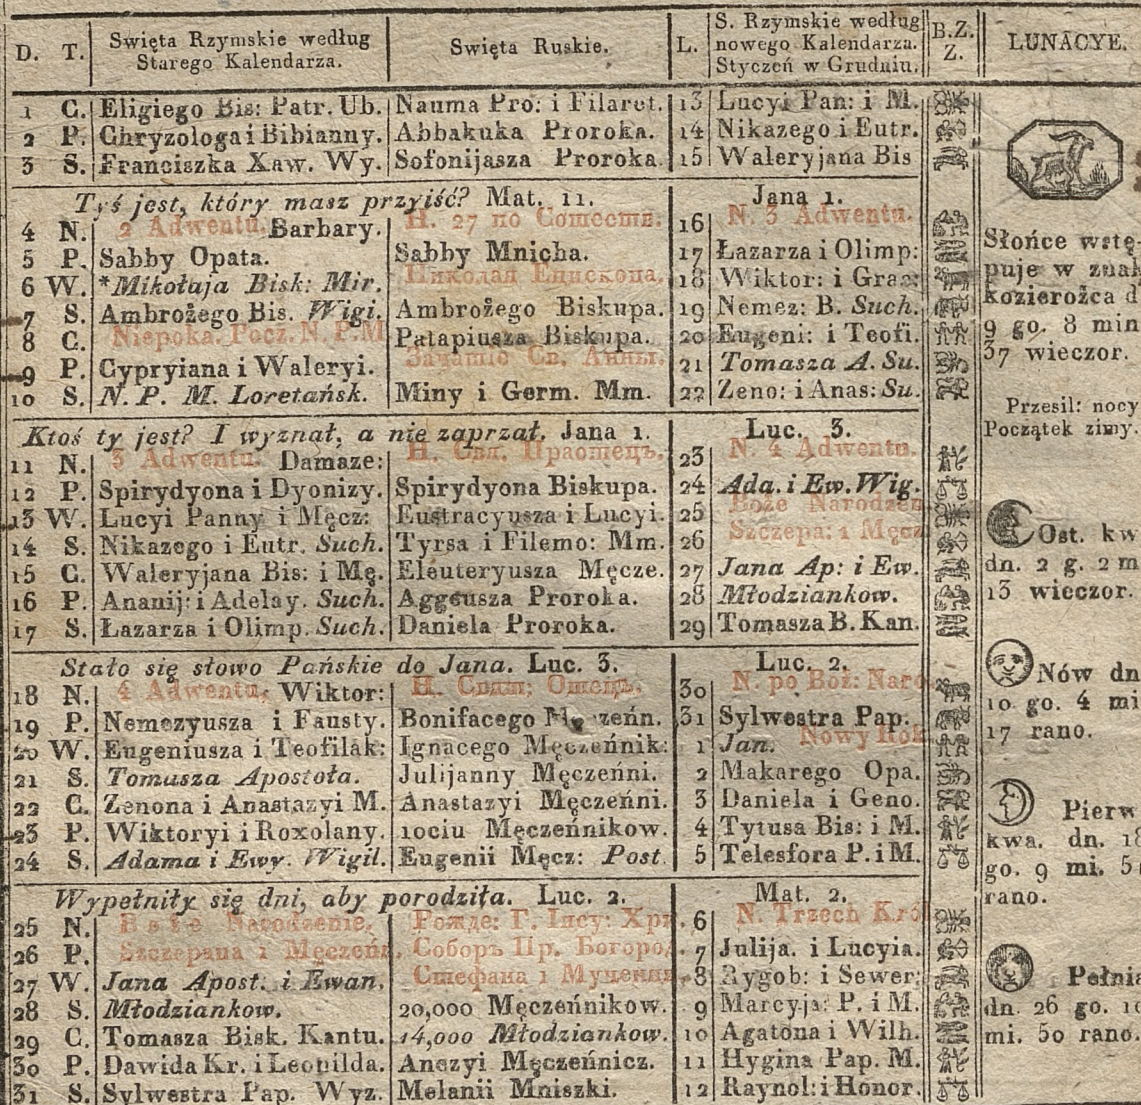 D. T. Swięta Rzymskie według Starego Kalendarza. Swięta Ruskie. L. S. Rzymskie według nowego Kalendarza. Styczeń w Grudniu. B.Z.Z. LUNACYE.
1 C. Eligiego Bis: Patr. Ub. Nauma Pro: i Filaret. 13 Lucyi Pan: i M.
2 P. Chryzologa i Bibianny. Abbakuka Proroka. 14 Nikazego i Eutr.
3 S. Franciszka Xaw. Wy. Sofonijasza Proroka. 15 Waleryjana Bis
Tyś jest, który masz przyiść? Mat. 11. Jana 1.
4 N. 2 Adwentu. Barbary. Н. 27 по Сошеств. 16 N. 3 Adwentu.
5 P. Sabby Opata. Sabby Mnicha. 17 Łazarza i Olimp:
6 W. *Mikołaja Bisk: Mir. Николая Епископа. 18 Wiktor: i Gra
7 S. Ambrożego Bis. Wigi. Ambrożego Biskupa. 19 Nemez: B. Such.
8 C. Niepoka. Pocz. N. P. M Patapiusza Biskupa. 20 Eugeni: i Teofi.
9 P. Cypryiana i Waleryi. Зачатіе Св. Анны. 21 Tomasza A. Su.
10 S. N. P. M. Loretańsk. Miny i Germ. Mm. 22 Zeno: i Anas: Su.
Ktoś ty jest? I wyznał, a nie zaprzał. Jana 1. Luc. 3.
11 N. 3 Adwentu. Damaze: Н. Свя. Праотецъ. 23 N. 4 Adwentu.
12 P. Spirydyona i Dyonizy. Spirydyona Biskupa. 24 Ada. i Ew. Wig.
13 W. Lucyi Panny i Męcz: Eustracyusza i Lucyi. 25 Boże Narodzen
14 S. Nikazego i Eutr. Such. Tyrsa i Filemo: Mm. 26 Szczepa: 1 Męcz
15 C. Waleryjana Bis: i Mę. Eleuteryusza Męcze. 27 Jana Ap: i Ew.
16 P. Ananij: i Adelay. Such. Aggeusza Proroka. 28 Młodziankow.
17 S. Łazarza i Olimp. Such. Daniela Proroka. 29 Tomasza B. Kan.
Stało się słowo Pańskie do Jana. Luc. 3. Luc. 2.
18 N. 4 Adwentu, Wiktor: Н. Свят: Отецъ. 30 N. po Boż: Naro
19 P. Nemezyusza i Fausty. Bonifacego 31 Sylwestra Pap.
20 W. Eugeniusza i Teofilak: Ignacego Męczeńnik: 1 Jan. Nowy Rok
21 S. Tomasza Apostoła. Julijanny Męczeńni. 2 Makarego Opa.
22 C. Zenona i Anastazyi M. Anastazyi Męczeńni. 3 Daniela i Geno.
23 P. Wiktoryi i Roxolany. 10ciu Męczeńnikow. 4 Tytusa Bis: i M.
24 S. Adama i Ewy. Wigil. Eugenii Męcz: Post 5 Telesfora P. i M.
Wypełniły się dni, aby porodziła. Luc. 2. Mat. 2.
25 N. Boże Narodzenie. Рожде: Г. Іису: Хри. 6 N. Trzech Kró
26 P. Szczepana 1 Męczeń. Соборъ Пр. Богород. 7 Julija. i Lucyia.
27 W. Jana Apost: i Ewan. Стефана 1 Мученик. 8 Rygob: i Sewer:
28 S. Młodziankow. 20,000 Męczeńnikow. 9 Marcyja: P. i M.
29 C. Tomasza Bisk. Kantu. 14,000 Młodziankow. 10 Agatona i Wilh.
30 P. Dawida Kr. i Leopilda. Anezyi Męczeńnicz. 11 Hygina Pap. M.
31 S. Sylwestra Pap. Wyz. Melanii Mniszki. 12 Raynol: i Honor.
Słońce wstę
puje w znak
kozierożca d
9 go. 8 min
37 wieczor.
Przesil: nocy
Początek zimy.
Ost. kw
dn. 2 g. 2 m
13 wieczor.
Nów dn
10 go. 4 mi
17 rano.
Pierw
kwa. dn. 18
go. 9 mi. 5
rano.
Pełnia
dn. 26 go. 10
mi. 50 rano.